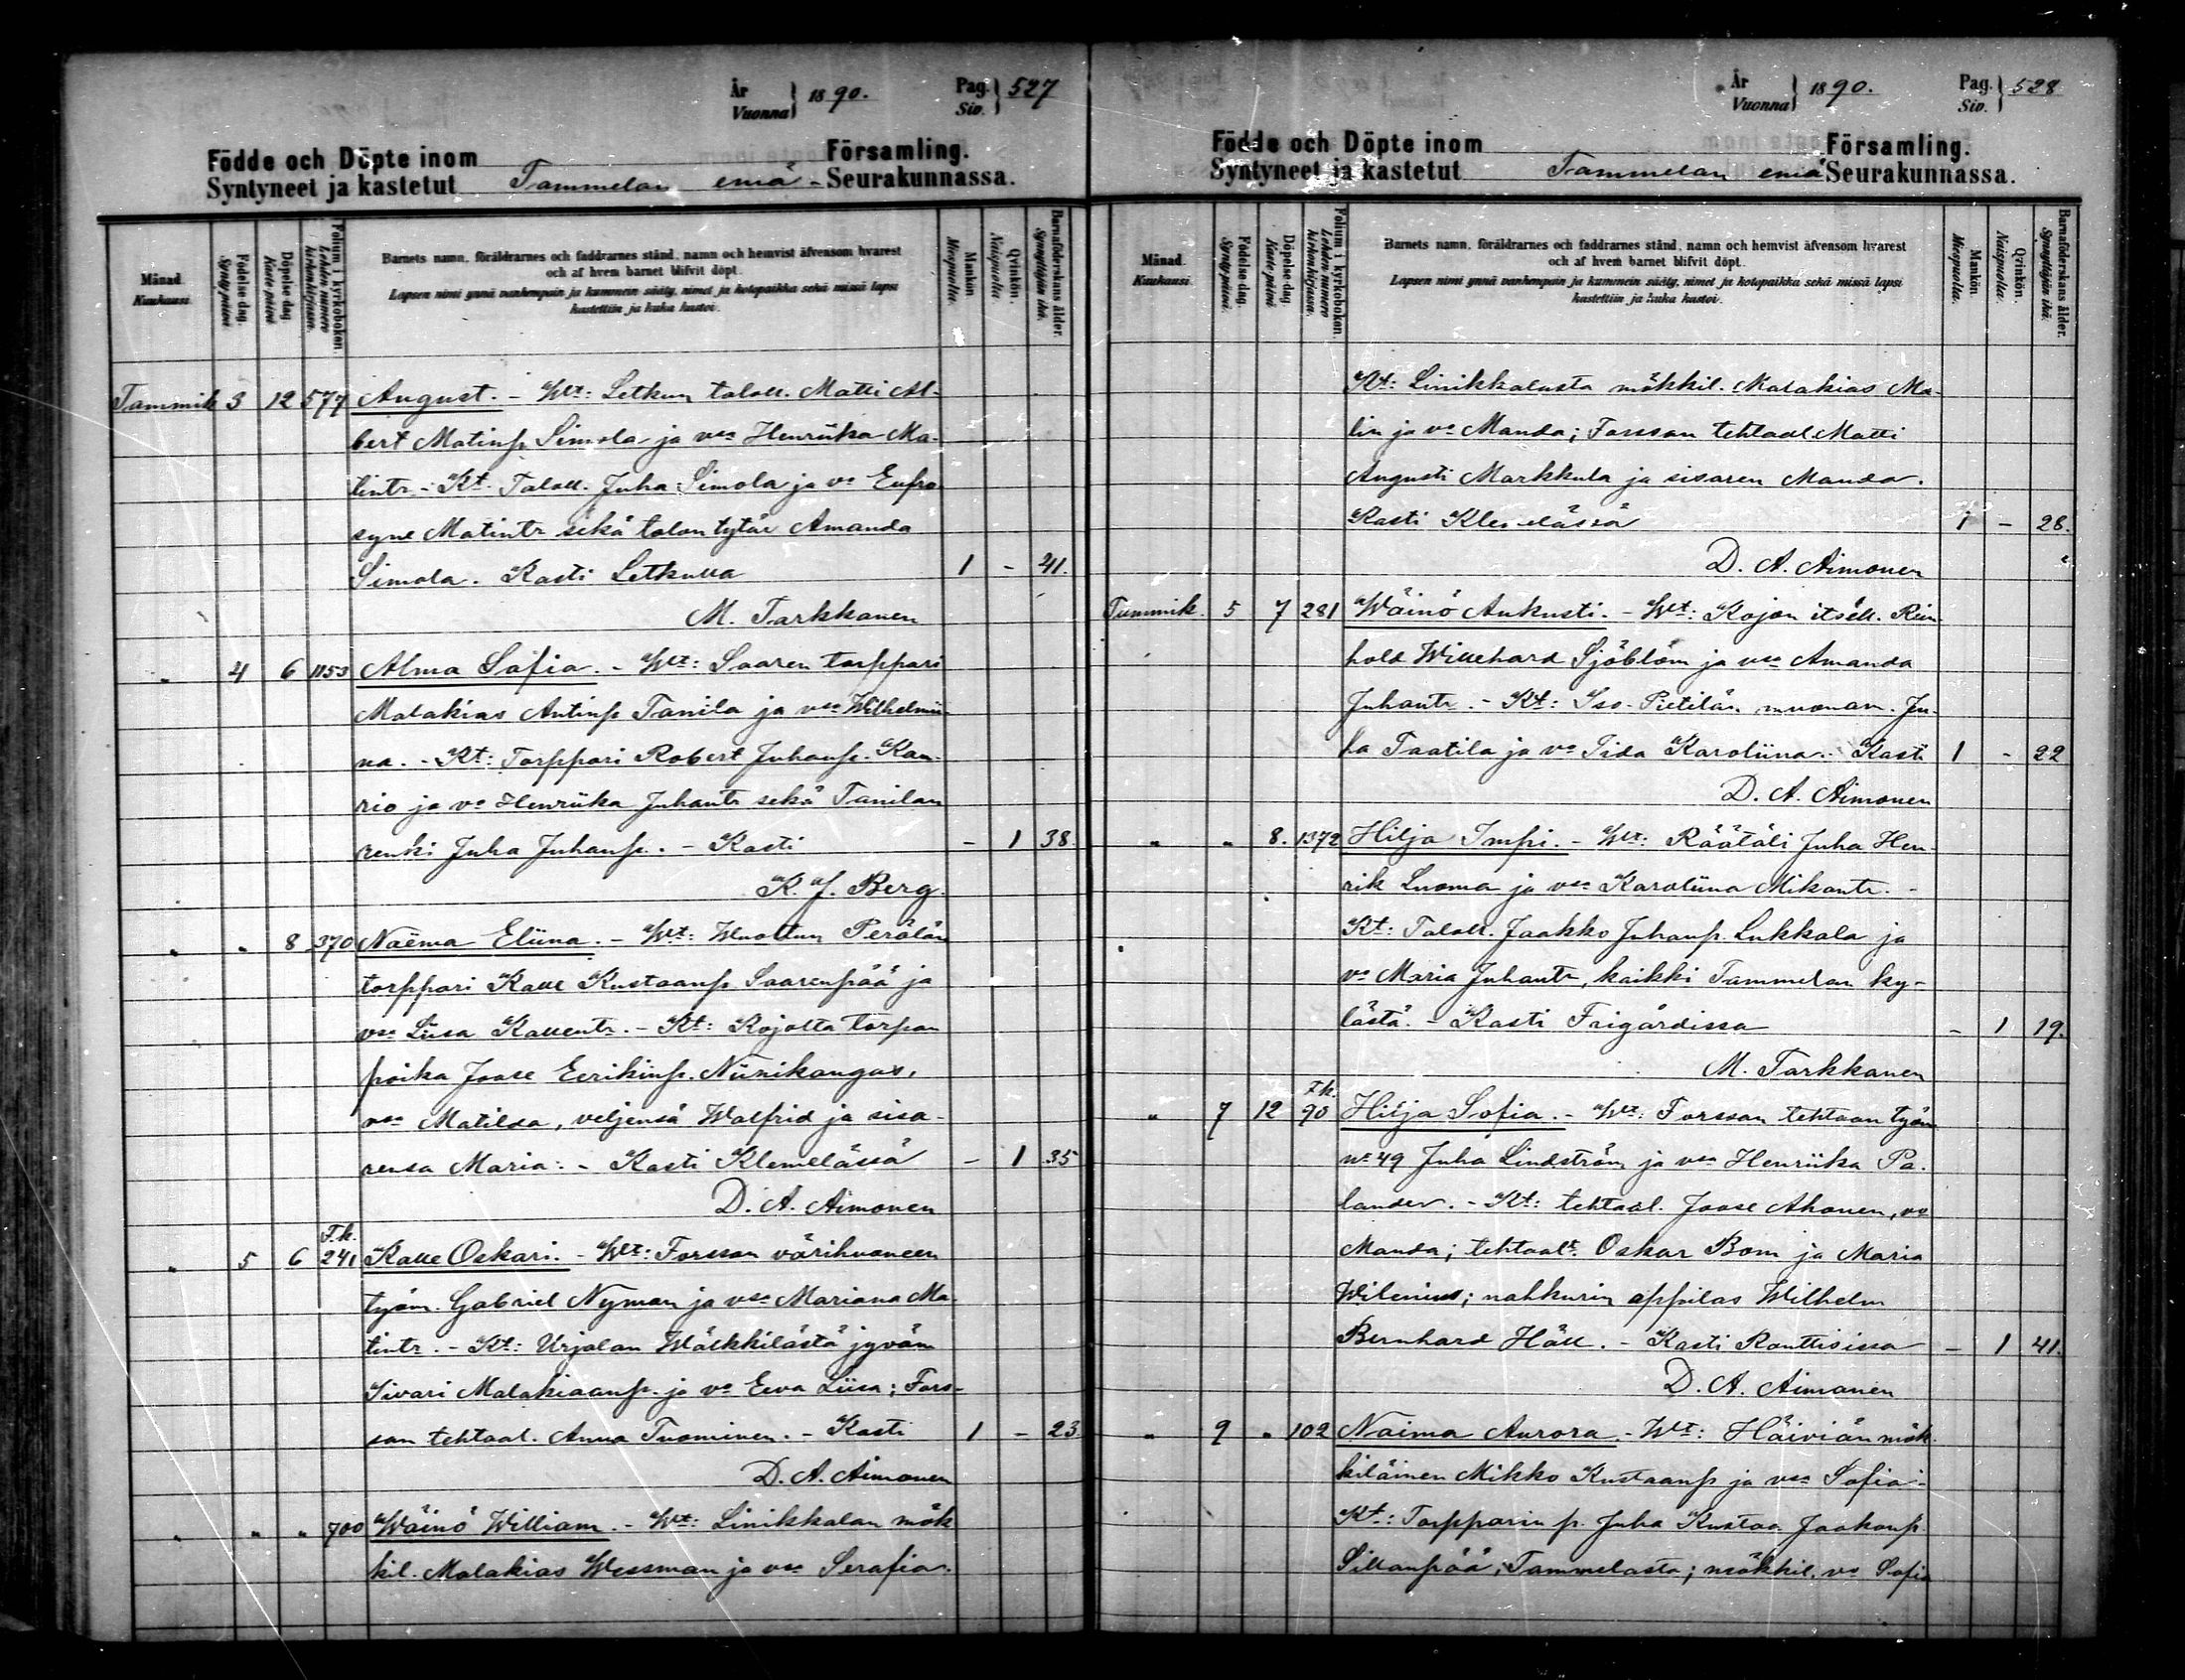 År
Vuonna } 1890. Pag.
Siv. } 527
Födde och Döpte inom Församling.
Syntyneet ja kastetut Tammelan emä- Seurakunnassa.
Månad. Kuukausi.
Födelse dag. Synty päivä.
Döpelse dag. Kaste päivä.
Folium i kyrkoboken. Lehden numero kirkonkirjassa.
Barnets namn, föräldrarnes och faddrarnes stånd, namn och hemvist äfvensom hvarest
och af hvem barnet blifvit döpt.
Lapsen nimi ynnä vanhempain ja kummein sääty, nimet ja kotopaikka sekä missä lapsi
kastettiin ja kuka kastoi.
Mankön. Miespuolia.
Qvinkön. Naispuolia.
Barnaföderskans ålder. Synnyttäjän ikä.
Tammik 3 12 577 August. - Wt: Letkun taloll. Matti Al-
bert Matinp. Simola ja vsa Henriika Ma-
tintr. - Kt. Taloll. Juha Simola ja vo Eufro
syne Matintr sekä talon tytär Amanda
Simola. Kasti Letkulla 1 - 41.
M. Tarkkanen
" 4 6 1153 Alma Sofia. - Wt: Saaren torppari
Malakias Antinp. Tanila ja vsa Wilhelmii-
na. - Kt: Torppari Robert Juhanp. Kau-
rio ja vo Henriika Juhantr sekä Tanilan
renki Juha Juhanp. - Kasti - 1 38.
K. J. Berg.
" " 8 370 Naëma Eliina. - Wt: Perälän
torppari Kalle Kustaanp. Saarenpää ja
vsa Liisa Kallentr. - Kt: Kojolta torpan
poika Joose Eerikinp. Niinikangas,
vsa Matilda, veljensä Walfrid ja sisa-
rensa Maria: - Kasti Klemelässä - 1 35
D. A. Aimonen
" 5 6 T.k. 241 Kalle Oskari. - Wt: Forssan värihuoneen
työm. Gabriel Nyman ja vsa Mariana Ma
tintr. - Kt: Urjalan Wälkkilästä jyväm
Iivari Malakiaanp. ja vo Eeva Liisa; Fors-
san tehtaal. Anna Tuominen. - Kasti 1 - 23
D. A. Aimonen
" " " 700 Wäinö William. - Wt: Linikkalan mök
kil. Malakias Wessman ja vsa Serafia.
År
Vuonna } 1890. Pag.
Siv. } 528
Födde och Döpte inom Församling.
Syntyneet ja kastetut Tammelan emä Seurakunnassa.
Månad. Kuukausi.
Födelse dag. Synty päivä.
Döpelse dag. Kaste päivä.
Folium i kyrkoboken. Lehden numero kirkonkirjassa.
Barnets namn, föräldrarnes och faddrarnes stånd, namn och hemvist äfvensom hvarest
och af hvem barnet blifvit döpt.
Lapsen nimi ynnä vanhempain ja kummein sääty, nimet ja kotopaikka sekä missä lapsi
kastettiin ja kuka kastoi.
Mankön. Miespuolia.
Qvinkön. Naispuolia.
Barnaföderskans ålder. Synnyttäjän ikä.
Kt: Linikkalasta mökkil. Malakias Ma-
lin ja vo Manda; Forssan tehtaal. Matti
Augusti Markkula ja sisaren Manda.
Kasti Klemelässä 1 - 28.
D. A. Aimonen
Tammik. 5 7 281 Wäinö Aukusti. - Wt: Kojon itsell. Rein
hold Willehard Sjöblöm ja vsa Amanda
Juhantr. - Kt: Iso-Pietilän muonam. Ju-
ha Taatila ja vo Iida Karoliina. - Kasti 1 - 22
D. A. Aimonen
" " 8. 1372 Hilja Impi. - Wt: Räätäli Juha Hen-
rik Luoma ja vsa Karoliina Mikantr. -
Kt: Taloll. Jaakko Juhanp. Lukkala ja
vo Maria Juhantr, kaikki Tammelan ky-
lästä. - Kasti Frigårdissa - 1 19.
M. Tarkkanen
" 7 12 T.k. 90 Hilja Sofia. - Wt: Forssan tehtaan työm
no 49 Juha Lindström ja vsa Henriika Pa-
lander. - Kt: tehtaal. Joose Ahonen, vo
Manda; tehtaalt. Oskar Bom ja Maria
Wilenius; nahkurin oppilas Wilhelm
Bernhard Häll. - Kasti Ronttisissa - 1 41.
D. A. Aimonen
" 9 " 102 Naima Aurora. - Wt: Häiviän mök
kiläinen Mikko Kustaanp ja vsa Sofia -
Kt: Torpparin p. Juha Kustaa Jaakonp
Sillanpää; Tammelasta; mökkil. vo Sofia